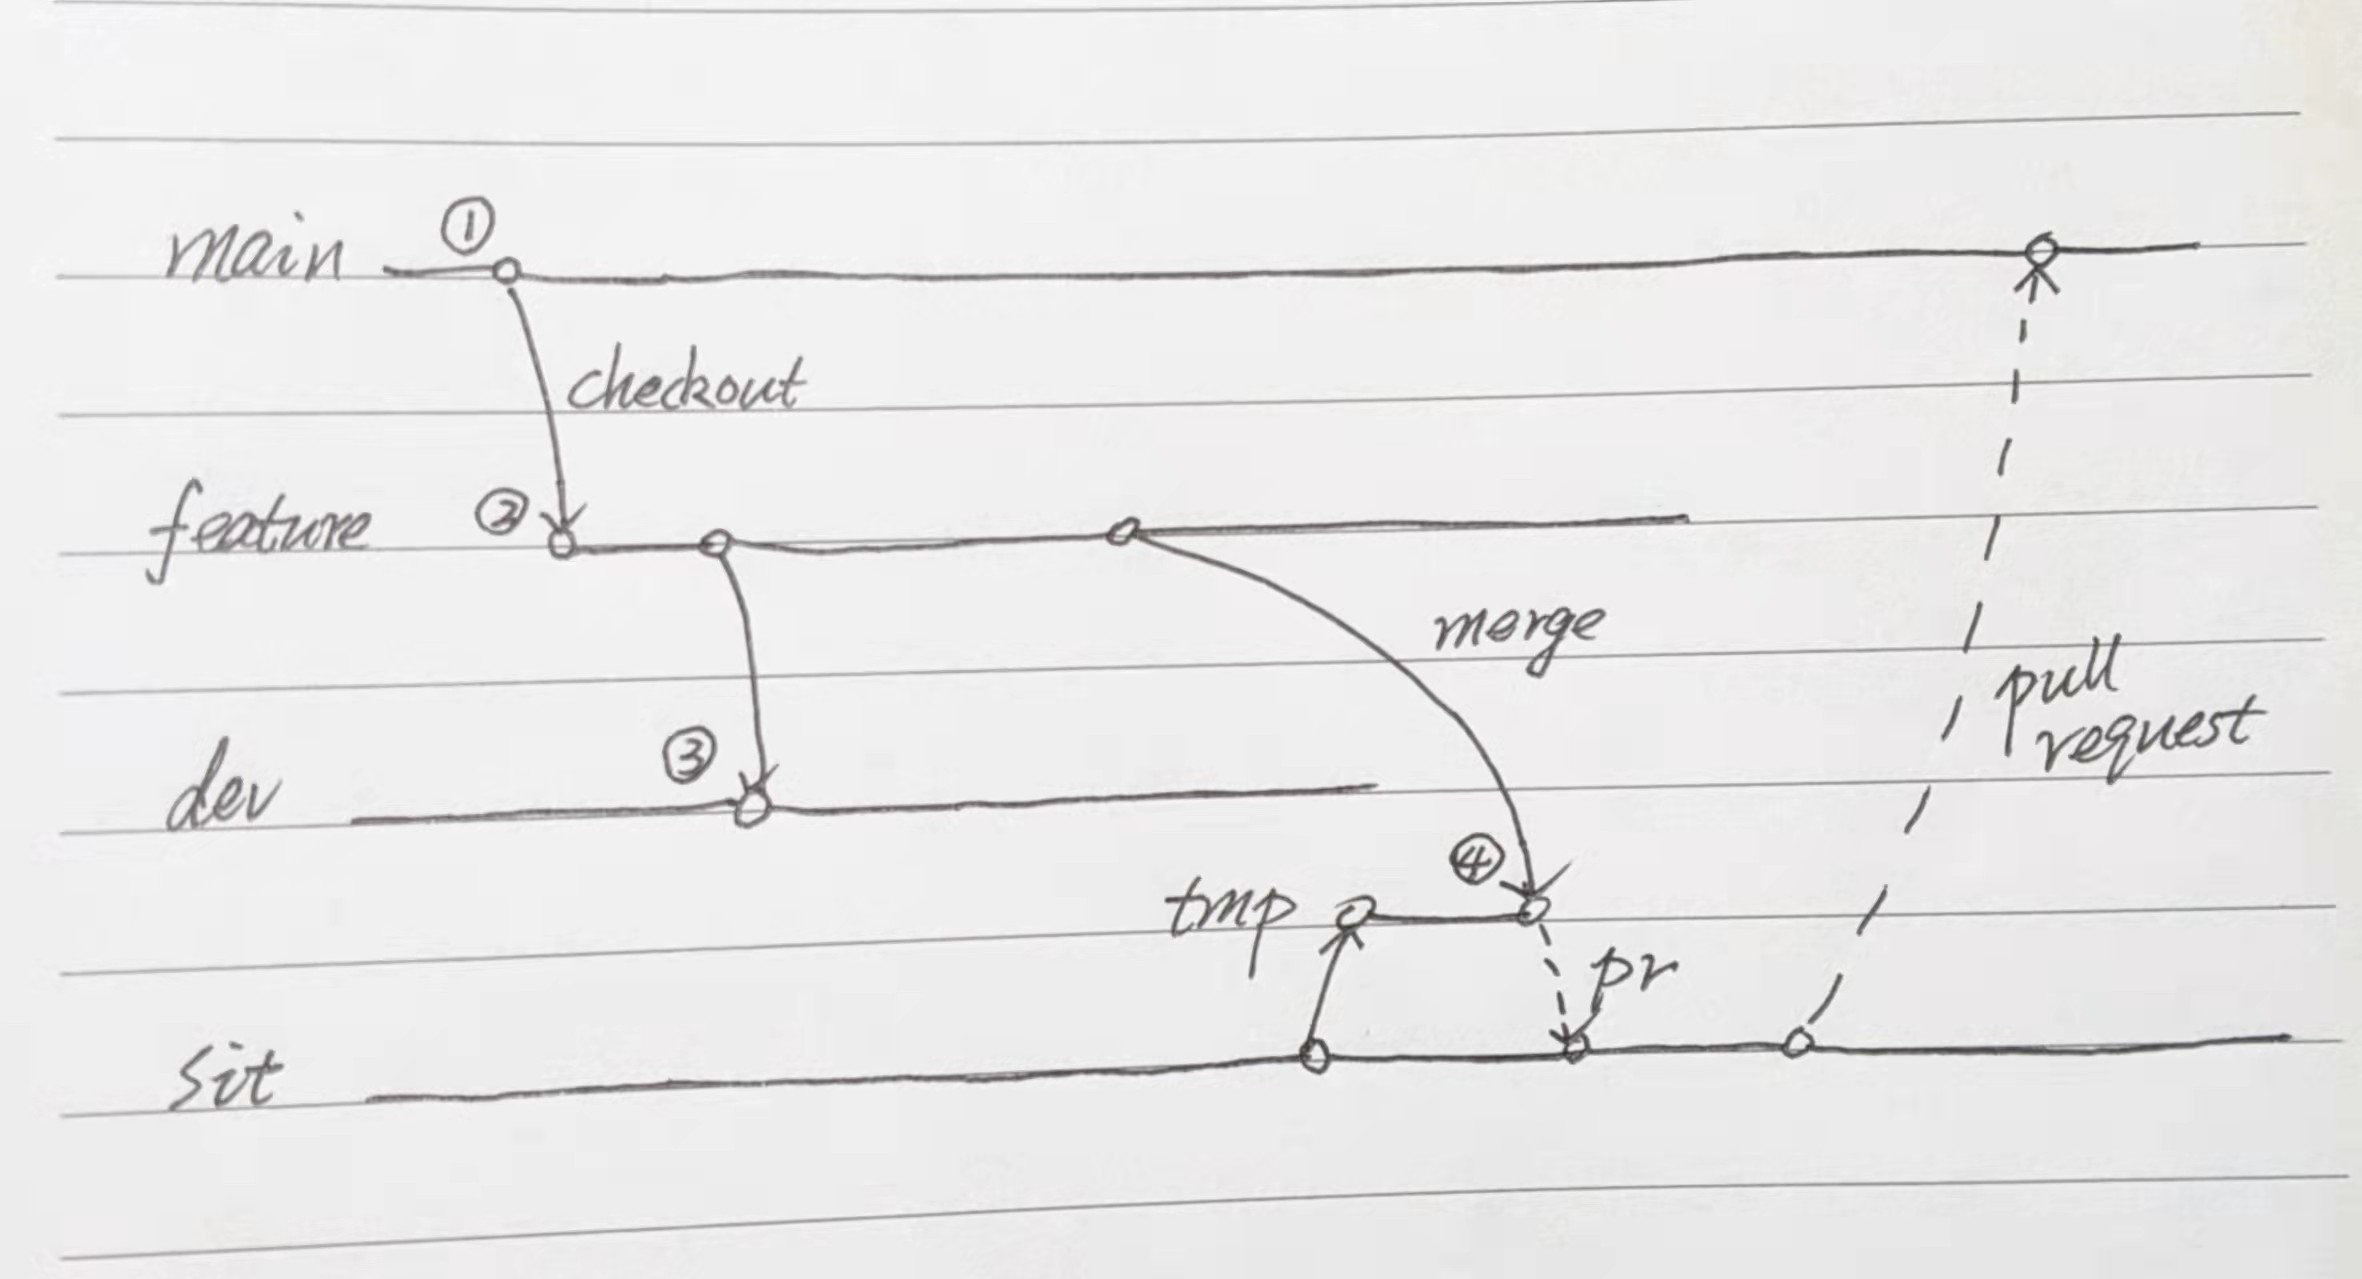 ①
main
checkout
②
feature
merge
pull
request
③
dev
④
tmp
pr
sit